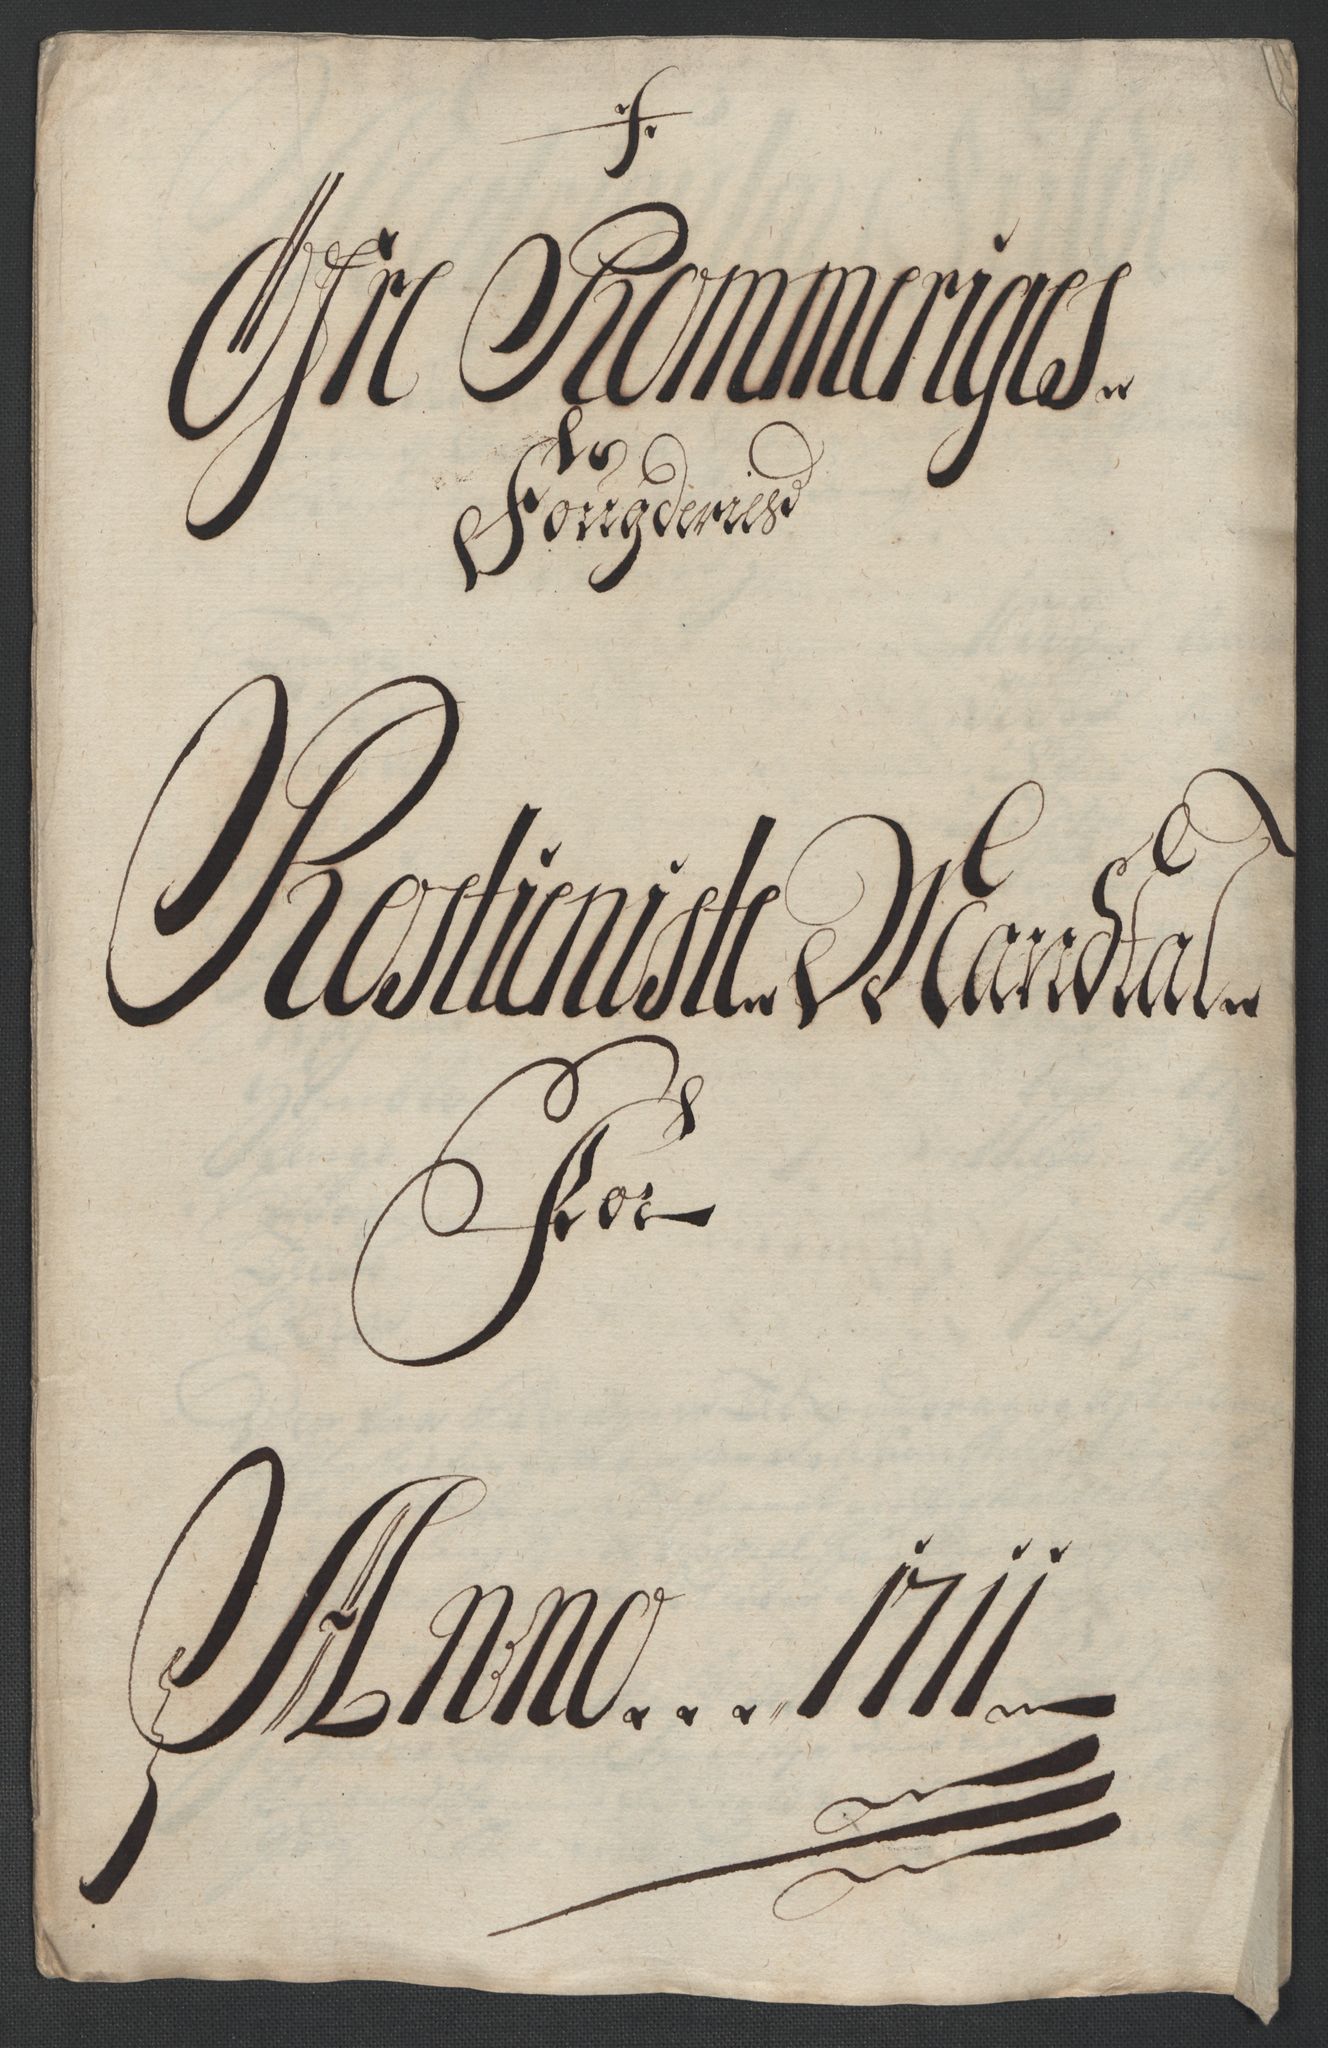 f.
Øfre Rommeriges
Fougderies
Rostieniste Mandtal
For
Anno... 1711